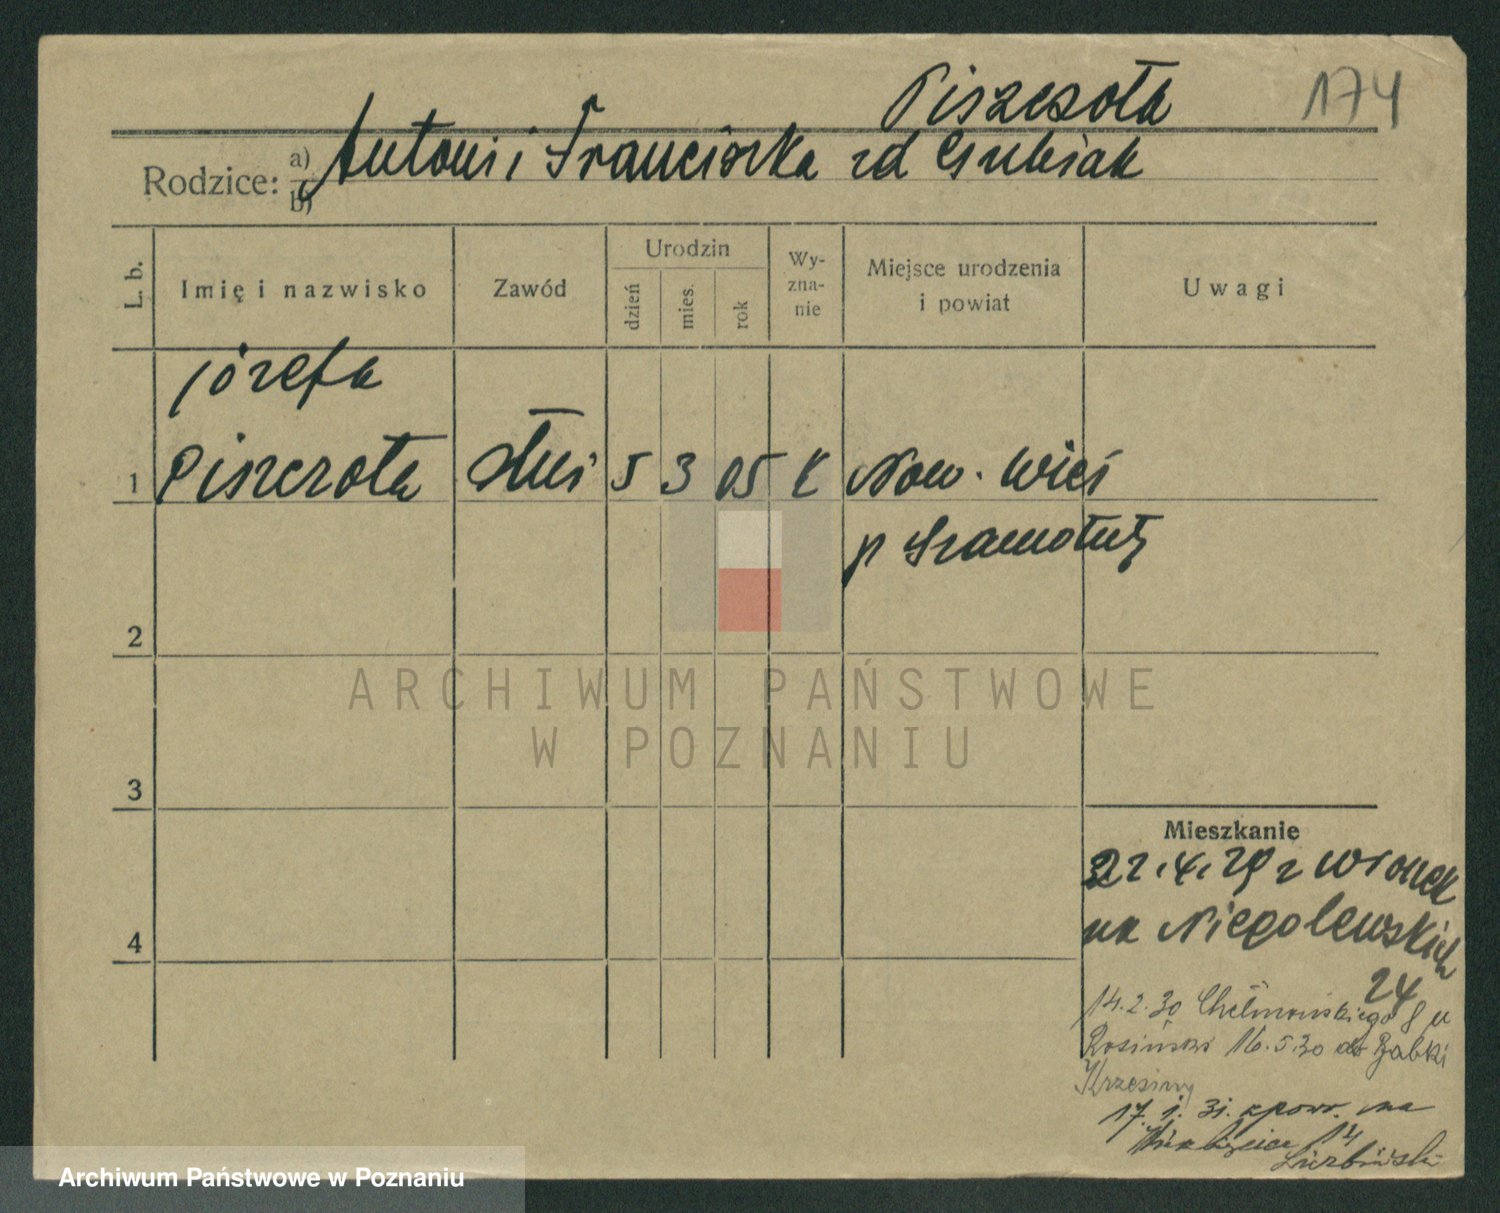 Piszczota 174
Rodzice: a) Antoni i Franciszka zd Gubiak
b)
L. b. Imię i nazwisko Zawód Urodzin dzień mies. rok Wyznanie Miejsce urodzenia i powiat Uwagi
Józefa
1 Piszczota słuź 5 3 05 K Now. Wieś
p Szamotuły
2
ARCHIWUM PAŃSTWOWE
W POZNANIU
3
Mieszkanie
22.4.29 z Wronek
na Niegolewskich
4
24
14.2.30 Chełmońskiego 8 u
Rosiński 16.5.30 do Babki
Krzesiny
17. 1. 31. z pow. na
14
Archiwum Państwowe w Poznaniu